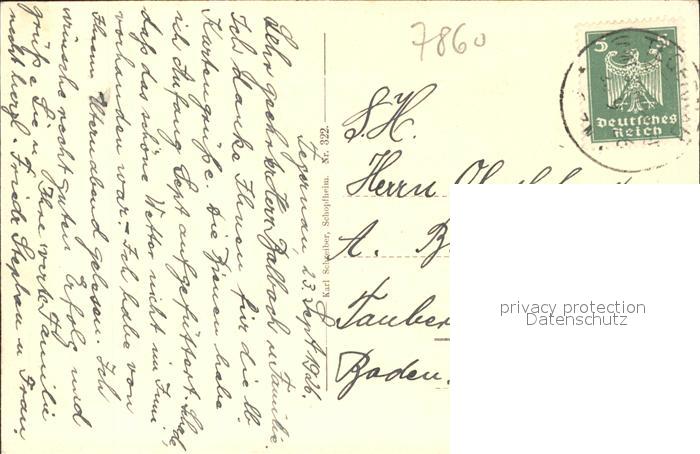 7860
5 5
Deutsches
Reich
Karl Schreiber, Schopfheim. Nr. 322.
Tegernau 23. Sept 1926.
Sehr geehrter Herr Balbach u. Familie.
Ich danke Ihnen für die lb.
Kartengrüße. Die Bienen habe
ich Anfang Sept aufgefüttert. Schade,
daß das schöne Wetter nicht im Juni
vorhanden war. – Ich habe von
Ihrem abend gelesen. Ich
wünsche recht guten Erfolg und
grüße Sie u. Ihre werte Familie
recht herzl. Friedr. Stephan u. Frau
S. H.
Herrn
A. B
Tauber
Baden.
privacy protection
Datenschutz